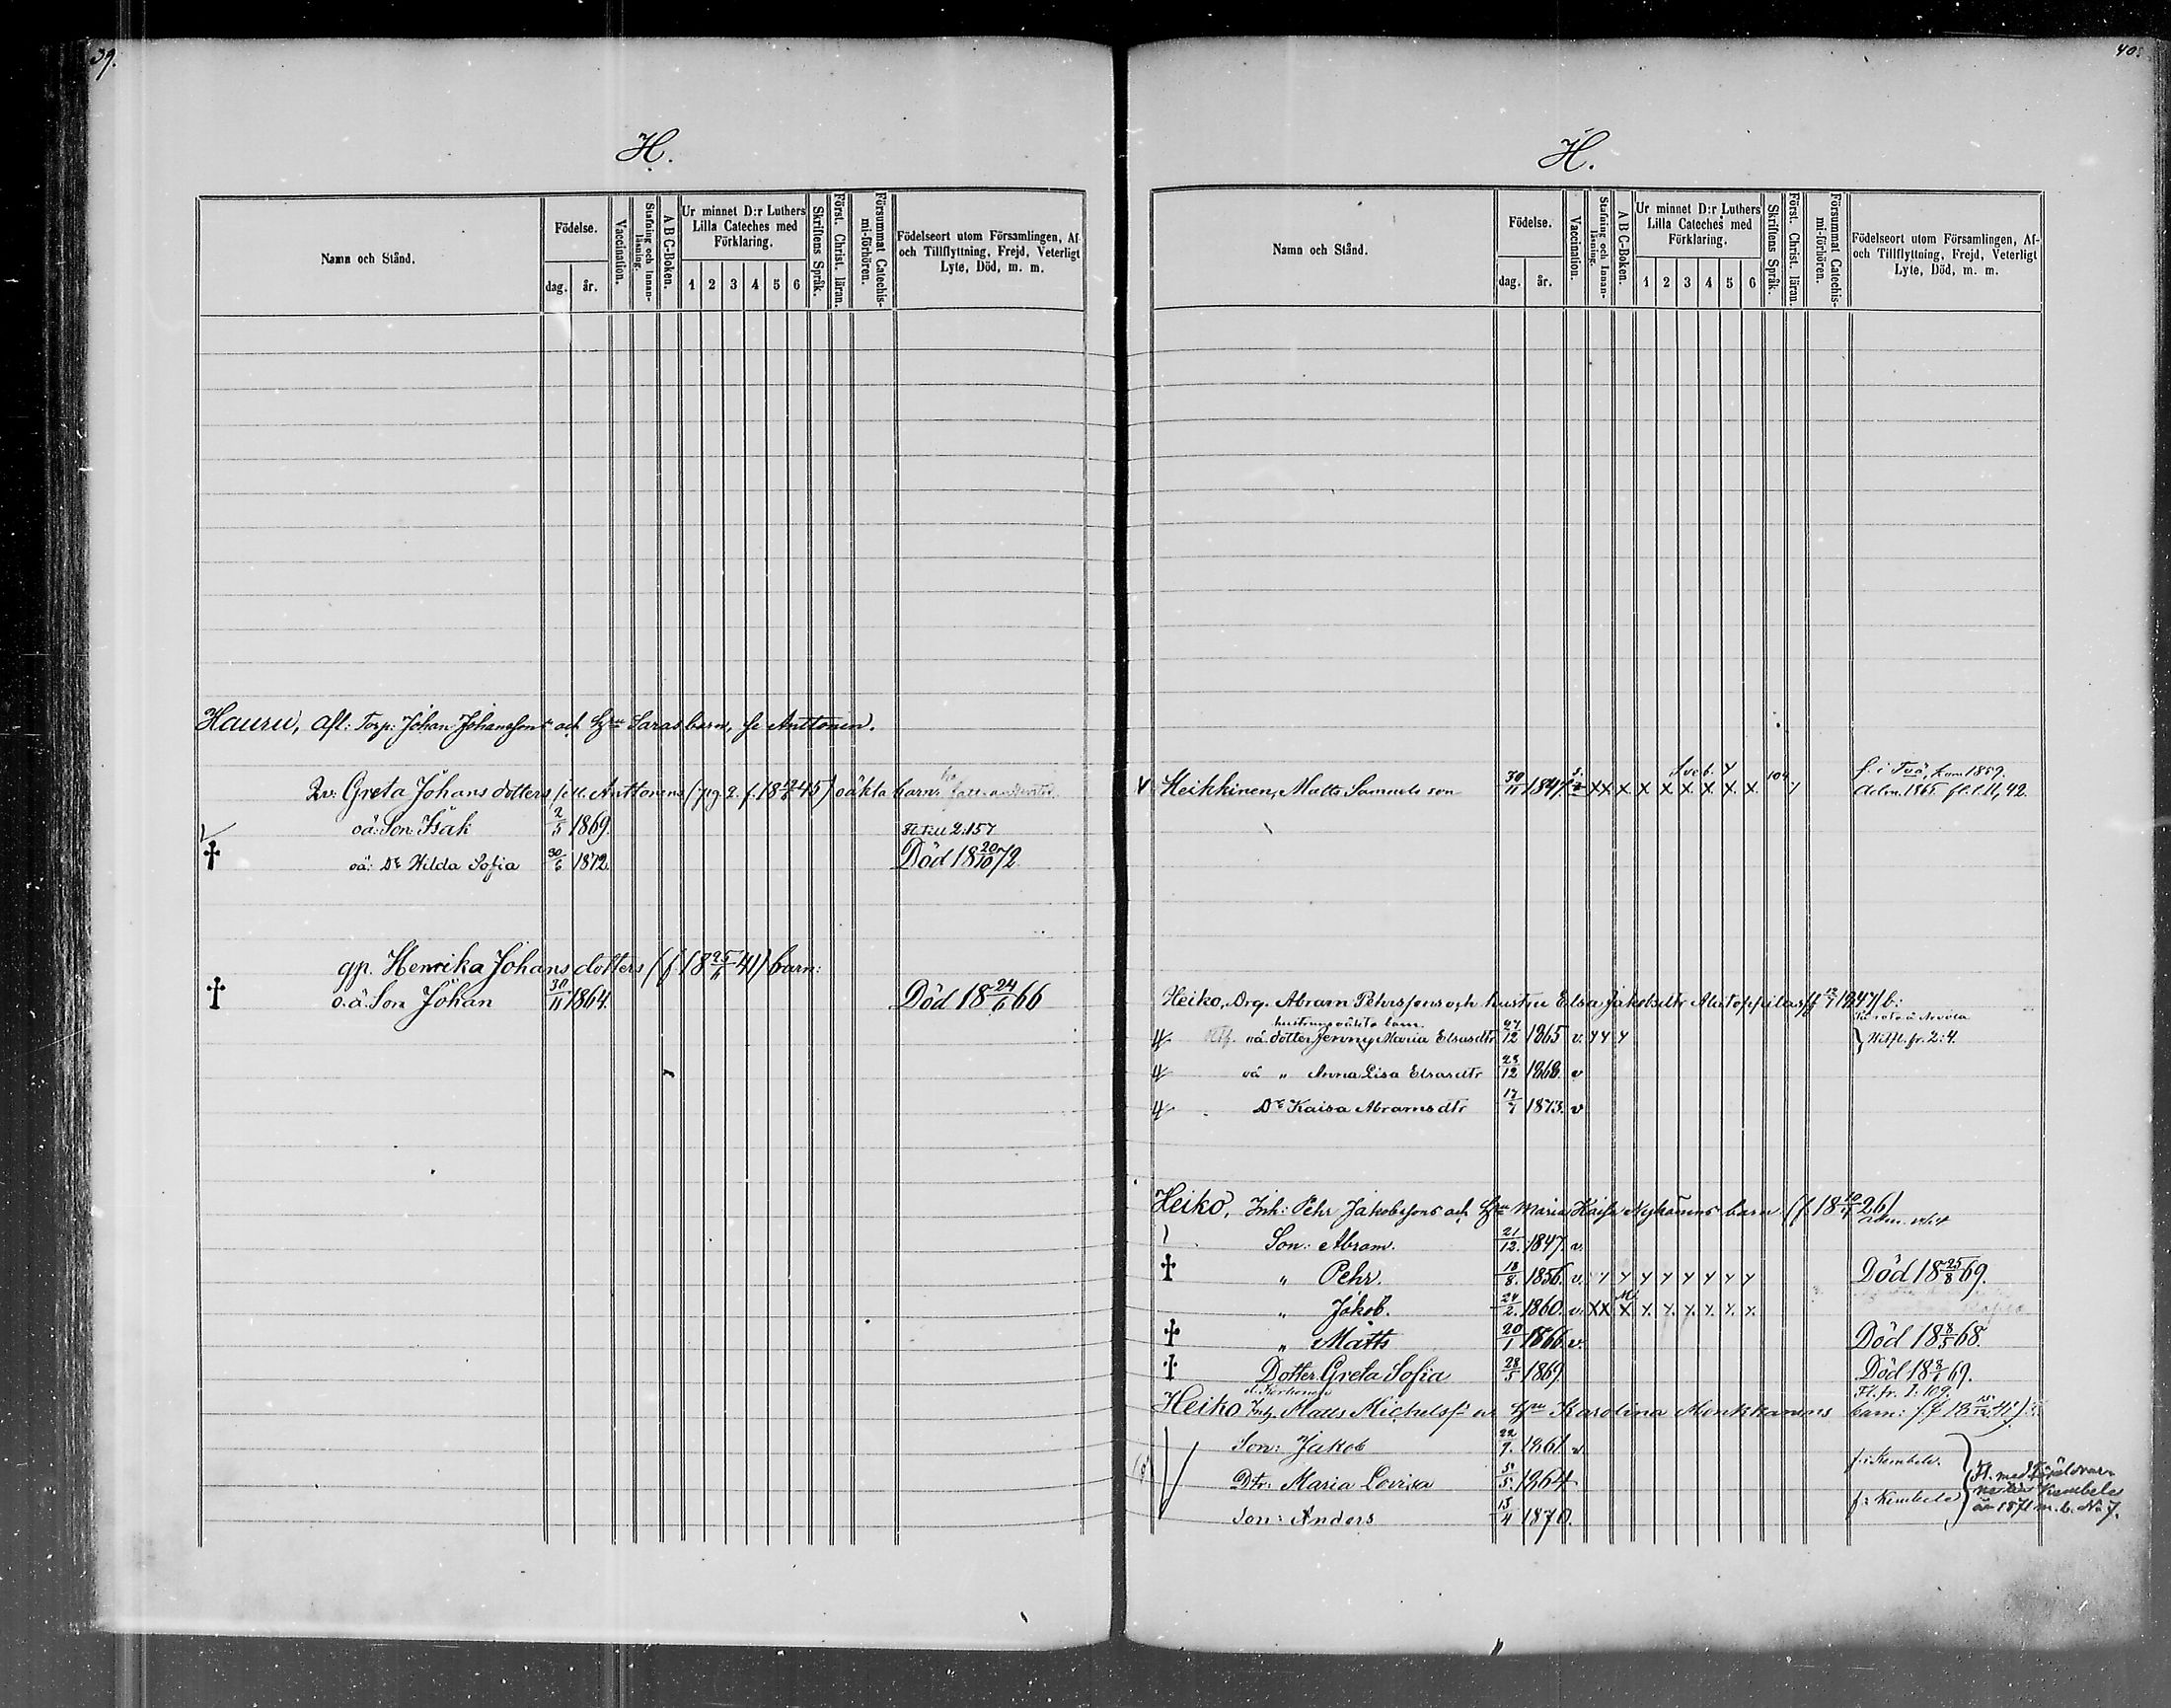 39.
H.
Namn och Stånd.
Födelse.
dag. år.
Vaccination.
Stafning och Innanläsning.
A B C-Boken.
Ur minnet D:r Luthers Lilla Cateches med Förklaring.
1 2 3 4 5 6
Skriftens Språk.
Först. Christ. läran.
Försummat Catechismi-förhören.
Födelseort utom Församlingen, Af- och Tillflyttning, Frejd, Veterligt Lyte, Död, m. m.
Hauru, Afl: Torp: Johan Johanssons och Hru Saras barn, se Anttonen.
Greta Johans dotters (ell. Anttonens (pg 2. f. 18 45) oäkta barn
oä: Son Isak 2/5 1869. Fl. till 2:157
† oä: Dr Hilda Sofia 30/6 1872. Död 18 20/10 72
gp. Henrika Johans dotters (f. 18 25/11 41) barn:
† o.ä. Son Johan 30/11 1864. Död 18 24/6 66
40.
H.
Namn och Stånd.
Födelse.
dag. år.
Vaccination.
Stafning och Innanläsning.
A B C-Boken.
Ur minnet D:r Luthers Lilla Cateches med Förklaring.
1 2 3 4 5 6
Skriftens Språk.
Först. Christ. läran.
Försummat Catechismi-förhören.
Födelseort utom Församlingen, Af- och Tillflyttning, Frejd, Veterligt Lyte, Död, m. m.
V Heikkinen, Matts Samuels son 30/11 1847. XX X X X X X X X 104 f. i kom 1859. Adm. 1865 fl. t. 11, 42.
Heiko, Drg. Abram Pehrssons och hustru Elsa Jakobsdtr (f 1847) b:
hustruns oäkta barn.
oä. dotter Jenny Maria Elsasdtr 27/12 1865 v. Hitfl. fr. 2:4.
oä " Anna Lisa Elsasdtr 23/12 1868. v
Dr Kaisa Abramsdtr 17/7 1873. v
Heiko, Inh: Pehr Jakobssons och Hru Maria Kaisa Nyhämns barn (f. 18 26)
Son: Abram. 21/12. 1847. v.
† " Pehr. 18/8. 1856. v. Död 18 25/8 69.
" Jakob. 24/2. 1860. v. XX X
† " Matts 20/1 1866. v. Död 18 8/5 68.
† Dotter Greta Sofia 28/5 1869. Död 18 69.
Fl. fr. I: 109.
Heiko Inh. Matts Michelss: o. Hru Karolina Monkkanens barn: (f. 18 15/12 41)
Son: Jakob 22/7. 1861. v f. i Kembele.
Dtr. Maria Lovisa 5/5. 1864
Son: Anders 15/4 1870. f. i Kembele
Fl. med föräldrarne till Kembele
år 1871 m. b. No 7.